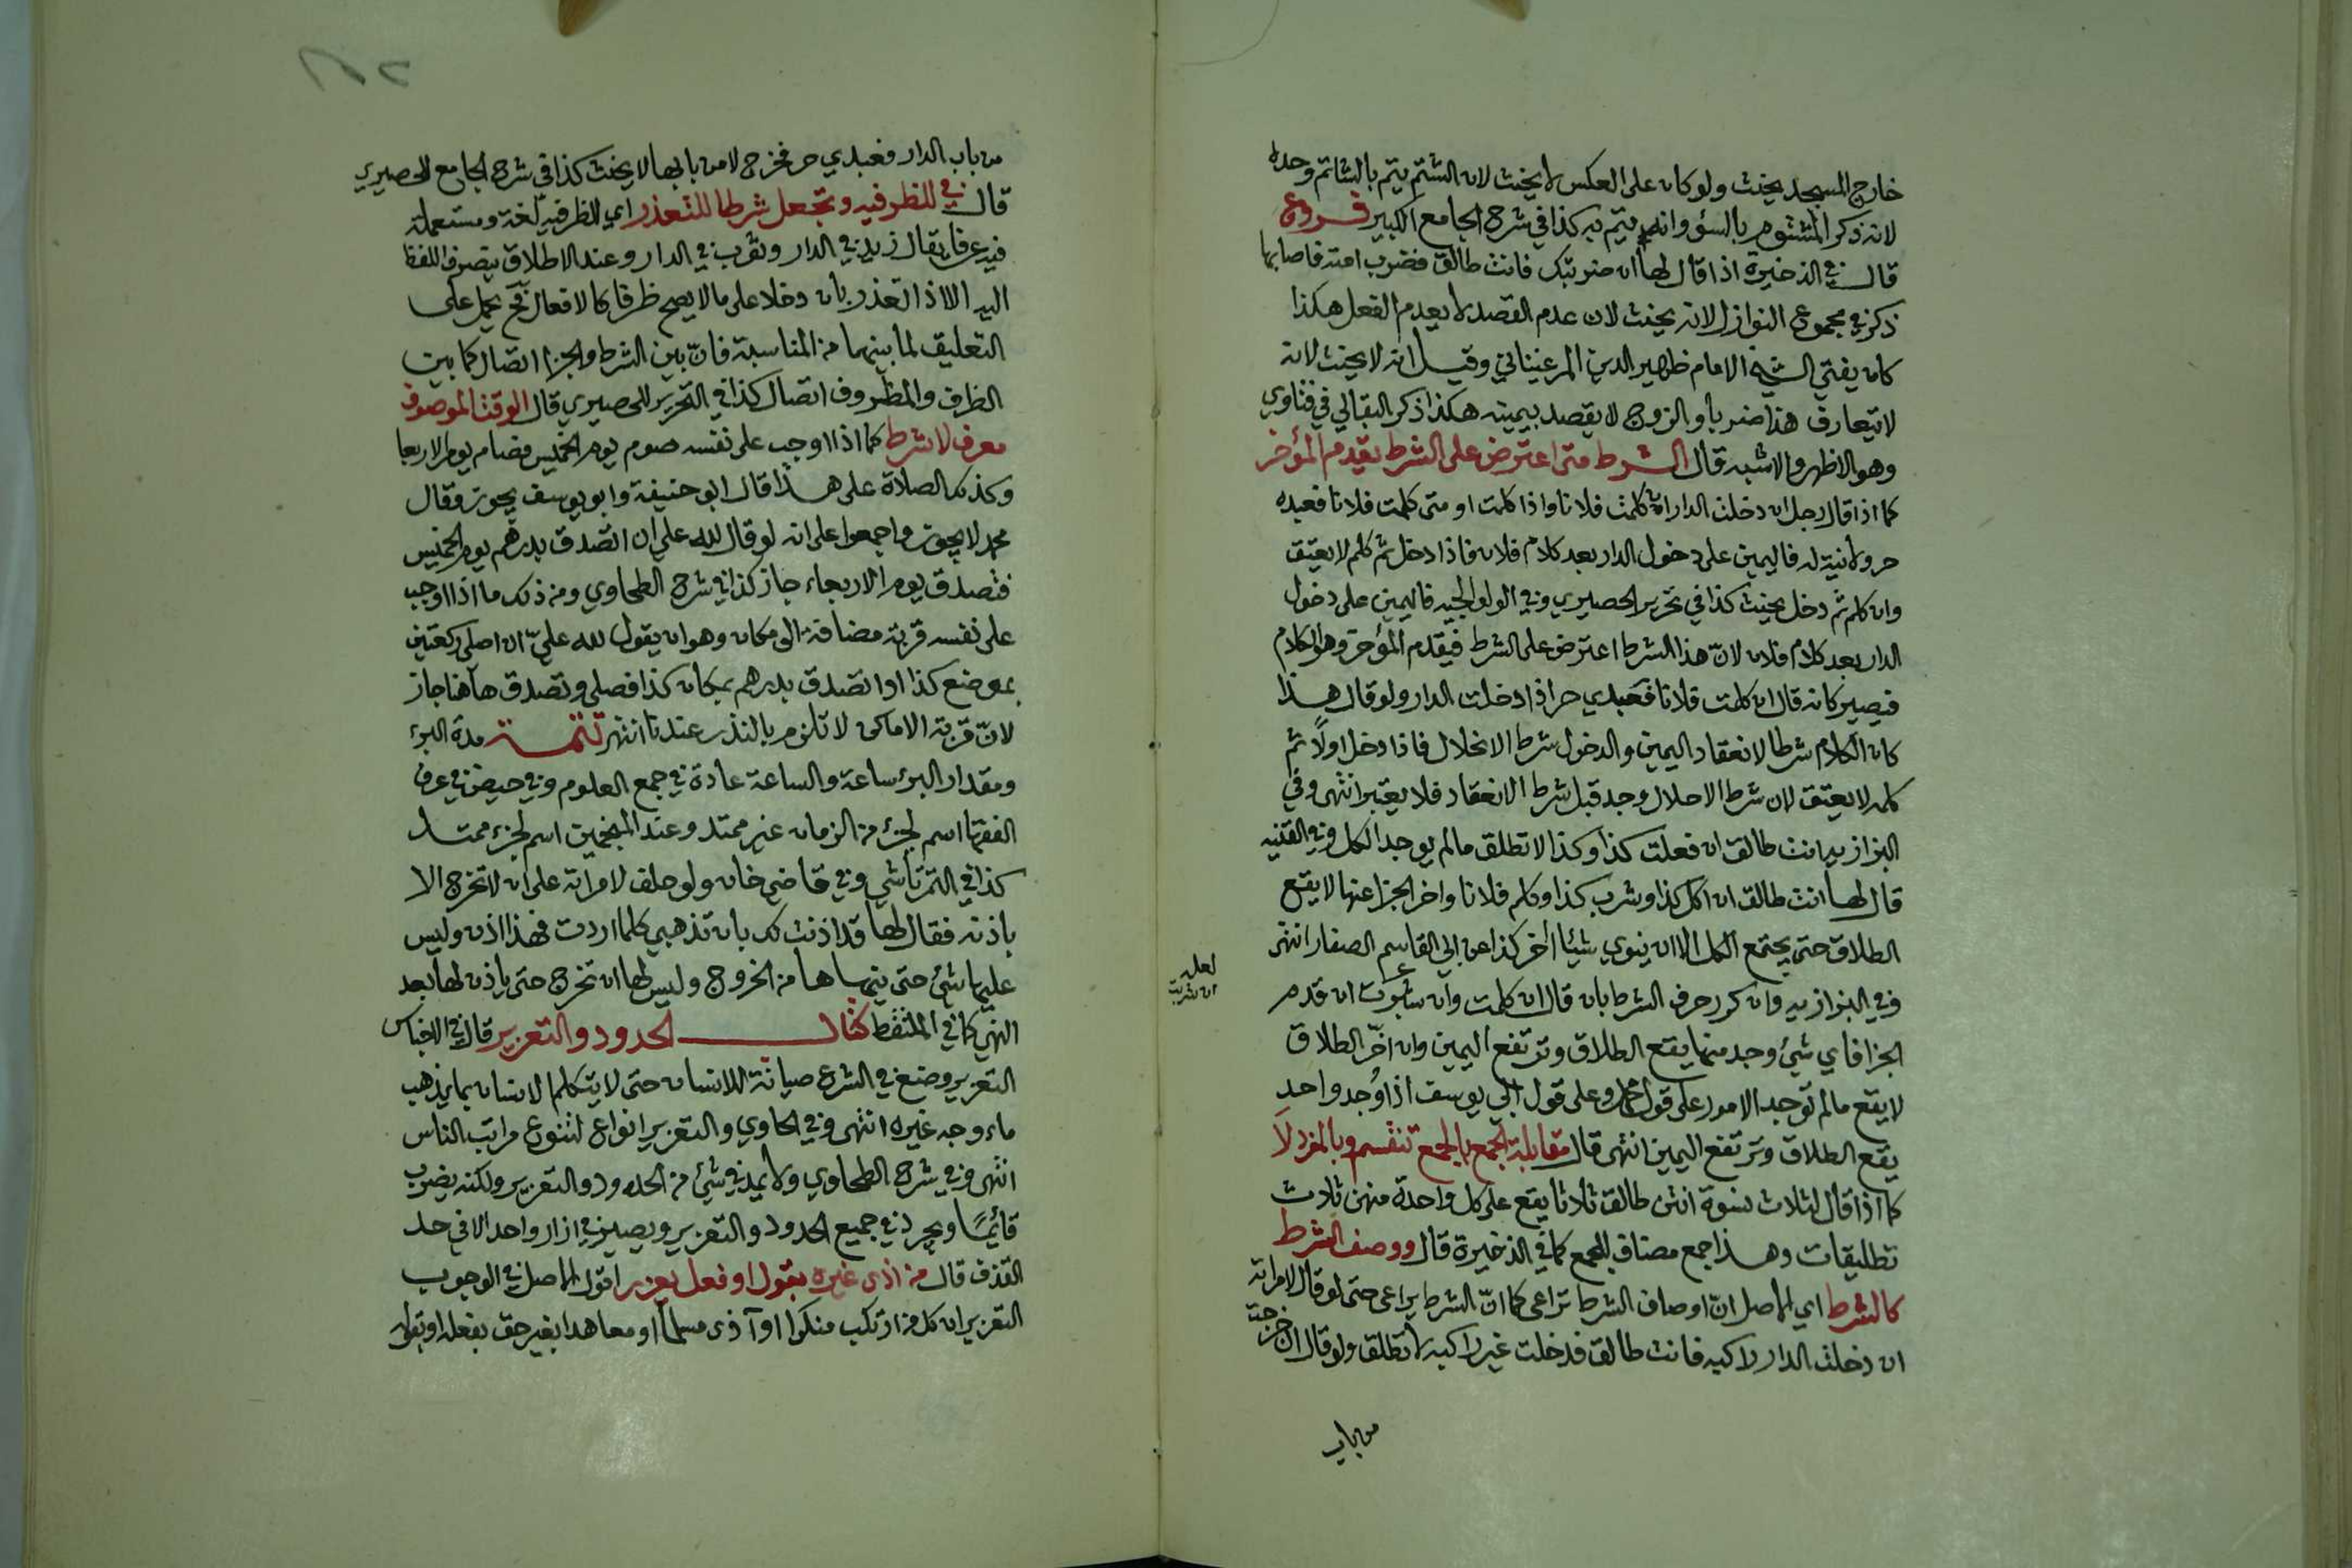 خارج المسجد يحنث ولو كان على العكس لا يحنث لان الشتم يتم بالشاتم وحده
لانه ذكر المشتوم بالسؤ وانه يتم به كذا في شرح الجامع الكبير فروع
قال في الذخيرة اذا قال لها ان ضربتك فانت طالق فضرب امته فاصابها
ذكر في مجموع النوازل انه يحنث لان عدم القصد لا يعدم الفعل هكذا
كان يفتي الشيخ الامام ظهير الدين المرغيناني وقيل انه لا يحنث لانه
لا يتعارف هذا ضربا والزوج لا يقصد بيمينه هكذا ذكر البقالي في فتاوي
وهو الاظهر والاشبه قال الشرط متى اعترض على الشرط يقدم المؤخر
كما اذا قال رجل ان دخلت الدار ان كلمت فلانا واذا كلمت او متى كلمت فلانا فعبده
حر ولا نية له فاليمين على دخول الدار بعد كلام فلان فاذا دخل ثم كلم لا يعتق
وان كلم ثم دخل يحنث كذا في تحرير الحصيري وفي الولوالجيه فاليمين على دخول
الدار بعد كلام فلان لان هذا الشرط اعترض على الشرط فيقدم المؤخر وهو الكلام
فيصير كانه قال ان كلمت فلانا فعبدي حر اذا دخلت الدار ولو قال هذا
كان الكلام شرطا لانعقاد اليمين والدخول شرط الانحلال فاذا دخل اولا ثم
كلمه لا يعتق لان شرط الاحلال وجد قبل شرط الانعقاد فلا يعتبر انتهى وفي
البزازيه انت طالق ان فعلت كذا وكذا لا تطلق مالم يوجد الكل وفي القنيه
قال لها انت طالق ان اكل كذا وشرب كذا وكلم فلانا واخر الجزا عنها لا يقع
الطلاق حتى يجتمع الكل الا ان ينوي شيئا اخر كذا عن ابي القاسم الصفار انتهى
وفي البزازيه وان كرر حرف الشرط بان قال ان كلمت وان شربت ان قدم
لعله
ان شربت
الجزا فاي شئ وجد منها يقع الطلاق وترتفع اليمين وان اخر الطلاق
لا يقع مالم توجد الامور على قول محمد وعلى قول ابي يوسف اذا وجد واحد
يقع الطلاق وترتفع اليمين انتهى قال مقابلة الجمع بالجمع تنقسم وبالمفرد لا
كما اذا قال لثلاث نسوة انتن طالق ثلاثا يقع على كل واحدة منهن ثلاث
تطليقات وهذا جمع مضاف للجمع كما في الذخيرة قال ووصف الشرط
كالشرط اي الاصل ان اوصاف الشرط تراعى كما ان الشرط يراعى حتى لو قال لامراته
ان دخلت الدار راكبه فانت طالق فدخلت غير راكبه لا تطلق ولو قال ان خرجت
من باب
من باب الدار فعبدي حر فخرج لا من بابها لا يحنث كذا في شرح الجامع للحصيري
قال في للظرفيه وتجعل شرطا للتعذر اي للظرفيه لغة ومستعملة
فيه عرفا يقال زيد في الدار وثوب في الدار وعند الاطلاق ينصرف اللفظ
اليه الا اذا تعذر بان دخلا على ما لا يصح ظرفا كالافعال فح يحمل على
التعليق لما بينهما من المناسبة فان بين الشرط والجزا اتصال كما بين
الظرف والمظروف اتصال كذا في التحرير للحصيري قال الوقت الموصوف
معرف لا شرط كما اذا اوجب على نفسه صوم يوم الخميس فصام يوم الاربعا
وكذلك الصلاة على هذا قال ابو حنيفة وابو يوسف يجوز وقال
محمد لا يجوز واجمعوا على انه لو قال لله علي ان اتصدق بدرهم يوم الخميس
فتصدق يوم الاربعاء جاز كذا في شرح الطحاوي ومن ذلك ما اذا اوجب
على نفسه قربة مضافة الى مكان وهو ان يقول لله علي ان اصلي ركعتين
بموضع كذا او اتصدق بدرهم بمكان كذا فصلى وتصدق هاهنا جاز
لان قربة الاماكن لا تلزم بالنذر عندنا انتهى تتمة مدة البرء
ومقدار البرء ساعة والساعة عادة في جمع العلوم وفي حيض في عرف
الفقها اسم لجزء من الزمان غير ممتد وعند المنجمين اسم لجزء ممتد
كذا في التمرتاشي وفي قاضي خان ولو حلف لامراته على ان لا تخرج الا
باذنه فقال لها قد اذنت لك بان تذهبي كلما اردت فهذا اذن وليس
عليها شئ حتى ينهاها من الخروج وليس لها ان تخرج حتى ياذن لها بعد
النهي كما في الملتقط كتاب الحدود والتعزير قال في الاجناس
التعزير وضع في الشرع صيانة للانسان حتى لا يتكلم الانسان بما يذهب
ماء وجه غيره انتهى وفي الحاوي والتعزير انواع لتنوع مراتب الناس
انتهى وفي شرح الطحاوي ولا يمد في شئ من الحدود والتعزير ولكنه يضرب
قائما ويجرد في جميع الحدود والتعزير ويصير في ازار واحد الا في حد
القذف قال من اذى غيره بقول او فعل يعزر اقول الاصل في الوجوب
التعزير ان كل من ارتكب منكرا او آذى مسلما او معاهدا بغير حق بفعله او بقوله